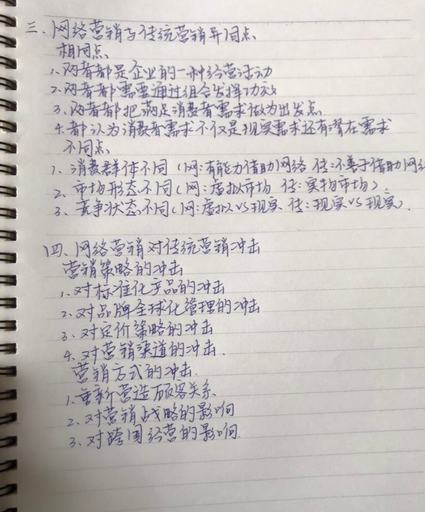 三、网络营销与传统营销异同点
相同点
1、两者都是企业的一种经营活动
2、两者都需要通过组合发挥功效
3、两者都把满足消费者需求做为出发点
4、都认为消费者需求不仅是现实需求还有潜在需求
不同点
1、消费群体不同（网：有能力借助网络 传：不善于借助网络
2、市场形态不同（网：虚拟市场 传：实物市场）
3、竞争状态不同（网：虚拟VS现实 传：现实VS现实）
四、网络营销对传统营销冲击
营销策略的冲击
1、对标准化产品的冲击
2、对品牌全球化管理的冲击
3、对定价策略的冲击
4、对营销渠道的冲击.
营销方式的冲击.
1、重新营造顾客关系.
2、对营销战略的影响
3、对跨国经营的影响.